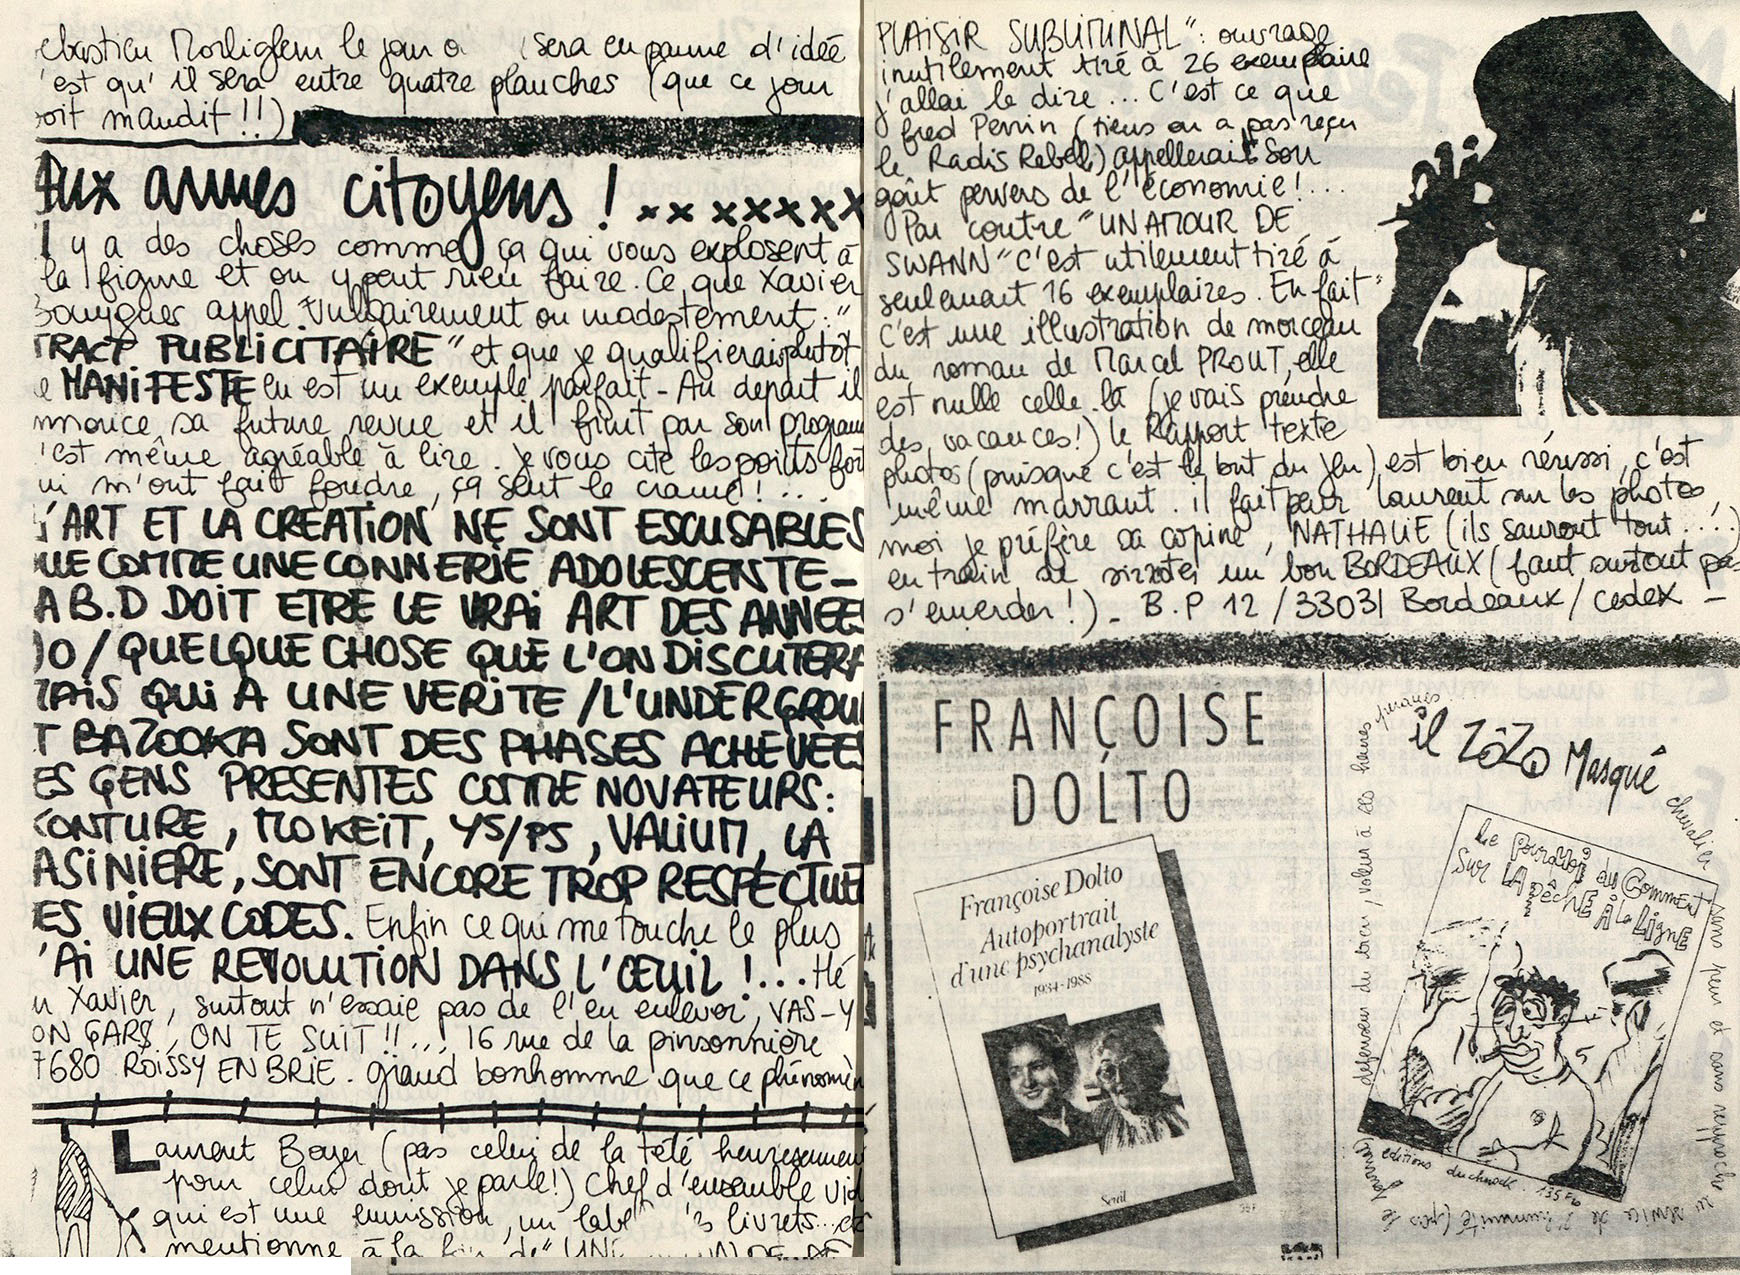 ebastien Morliglem le jour o sera en panne d'idée
'est qu'il sera entre quatre planches (que ce jour
oit maudit !!)
Aux armes citoyens ! xx xxxxxx
Il y a des choses comme ça qui vous explosent à
la figure et on y peut rien faire. Ce que Xavier
appel vulgairement ou modestement : "
TRACT PUBLICITAIRE" et que je qualifierais plutôt
e MANIFESTE en est un exemple parfait - Au depart il
nnonce sa future revue et il finit par son program
'est même agréable à lire. je vous cite les points fort
ui m'ont fait foudre, ça sent le crame ! ...
L'ART ET LA CREATION NE SONT ESCUSABLES
QUE COMME UNE CONNERIE ADOLESCENTE -
A B.D DOIT ETRE LE VRAI ART DES ANNEES
0 / QUELQUE CHOSE QUE L'ON DISCUTERA
MAIS QUI A UNE VERITE / L'UNDERGROU
T BAZOOKA SONT DES PHASES ACHEVEES
ES GENS PRESENTES COMME NOVATEURS :
CONTURE, MOKEIT, Y5/P5, VALIUM, LA
ASINIERE, SONT ENCORE TROP RESPECTUE
ES VIEUX CODES. Enfin ce qui me touche le plus
'AI UNE REVOLUTION DANS L'ŒEUIL ! ... Hé
u Xavier, surtout n'essaie pas de l'en enlever, VAS-Y
ON GARS, ON TE SUIT !! ... ! 16 rue de la pinsonnière
7680 ROISSY EN BRIE. grand bonhomme que ce phénomèn
Laurent Boyer (pas celui de la télé heureusemen
pour celui dont je parle!) Chef d'ensemble vid
qui est une emission, un label livrets... etc
mentionne à la de "UNE
PLAISIR SUBLIMINAL" : ouvrage
inutilement tiré à 26 exemplaire
j'allai le dire ... C'est ce que
fred Perrin (tiens on a pas reçu
le Radis Rebel) appellerait Son
goût pervers de l'économie ! ...
Par contre "UN AMOUR DE
SWANN" c'est utilement tiré à
seulement 16 exemplaires. En fait
c'est une illustration de morceau
du roman de Marcel PROUT, elle
est nulle celle-là (je vais prendre
des vacances!) le Rapport texte
photos (puisque c'est le but du jeu) est bien réussi, c'est
même marrant. il fait peur Laurent sur les photos,
moi je préfère sa copine, NATHALIE (ils sauront tout ...!)
en train de sizzoter un bon BORDEAUX (faut surtout pas
s'emerder!) - B.P 12 / 33031 Bordeaux / cedex -
FRANÇOISE
DOLTO
Françoise Dolto
Autoportrait
d'une psychanalyste
1934-1988
Seuil
il ZôZo Masqué
chevalier sans peur et sans reproche au service de l'humanité (pas le journal)
défenseur du bien, voleur à ses heures perdues
Le pourquoi du Comment
Sur LA pêche À la Ligne
editions duchnock. 135 Frs